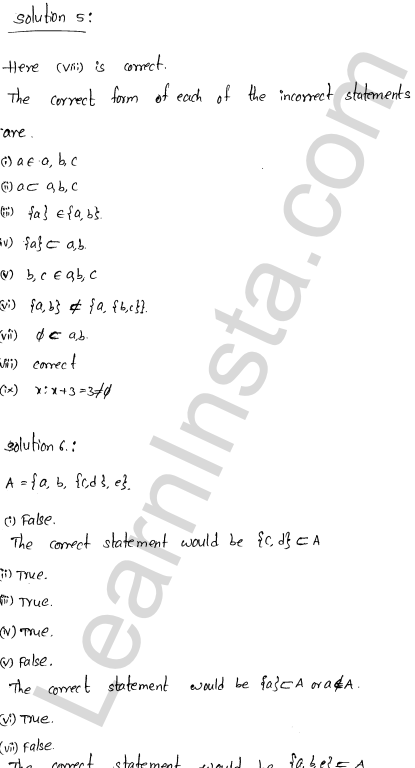 Solution 5:
Here (viii) is correct.
The correct form of each of the incorrect statements
are.
(i) a ∈ a, b, c
(ii) a ⊂ a, b, c
(iii) {a} ∈ {a, b}.
iv) {a} ⊂ a, b.
(v) b, c ∈ a, b, c
(vi) {a, b} ⊄ {a, {b,c}}.
(vii) ϕ ⊂ a, b.
viii) correct
(ix) x : x + 3 = 3 ≠ ϕ
Solution 6.:
A = {a, b, {c, d}, e}.
(i) False.
The correct statement would be {c, d} ⊂ A
ii) True.
iii) True.
(iv) True.
(v) False.
The correct statement would be {a} ⊂ A or a ∉ A.
(vi) True.
(vii) False.
The correct statement would be {a, b, e} ⊂ A
LearnInsta.com